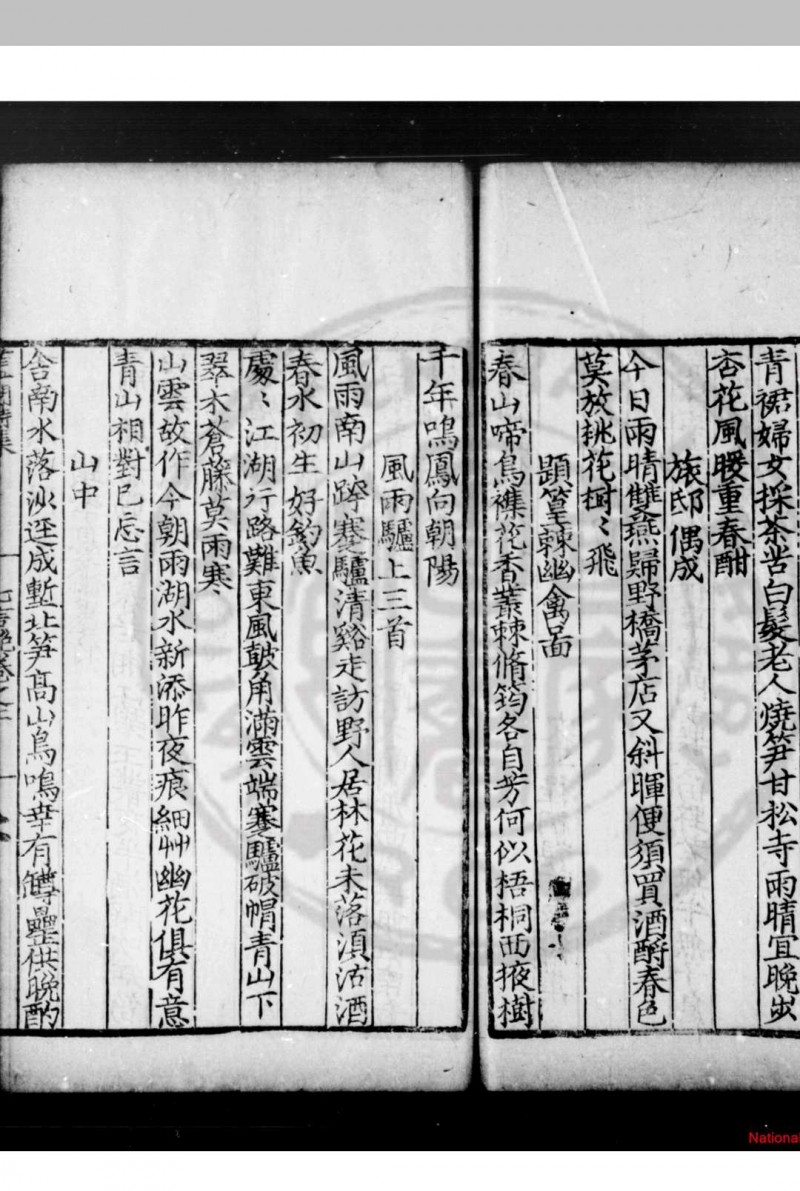 青裙婦女採茶苦白髮老人燒笋甘松寺雨晴宜晚出
杏花風暖重春酣
旅邸偶成
今日雨晴雙燕歸野橋茅店又斜暉便須買酒酹春色
莫放桃花樹〻飛
題篁棘幽禽啚
春山啼鳥襍花香叢棘脩筠各自芳何似梧桐西掖樹
千年鳴鳳向朝陽
風雨驢上三首
風雨南山蹄蹇驢清谿走訪野人居林花未落湏沽酒
春水初生好釣魚
處〻江湖行路難東風皷角滿雲端蹇驢破帽青山下
翠木蒼藤莫雨寒
山雲故作今朝雨湖水新添昨夜痕細艸幽花俱有意
青山相對已忘言
山中
舍南水落沙逕成塹北笋高山鳥鳴幸有罇罍供晚酌
七言絶卷之二
National